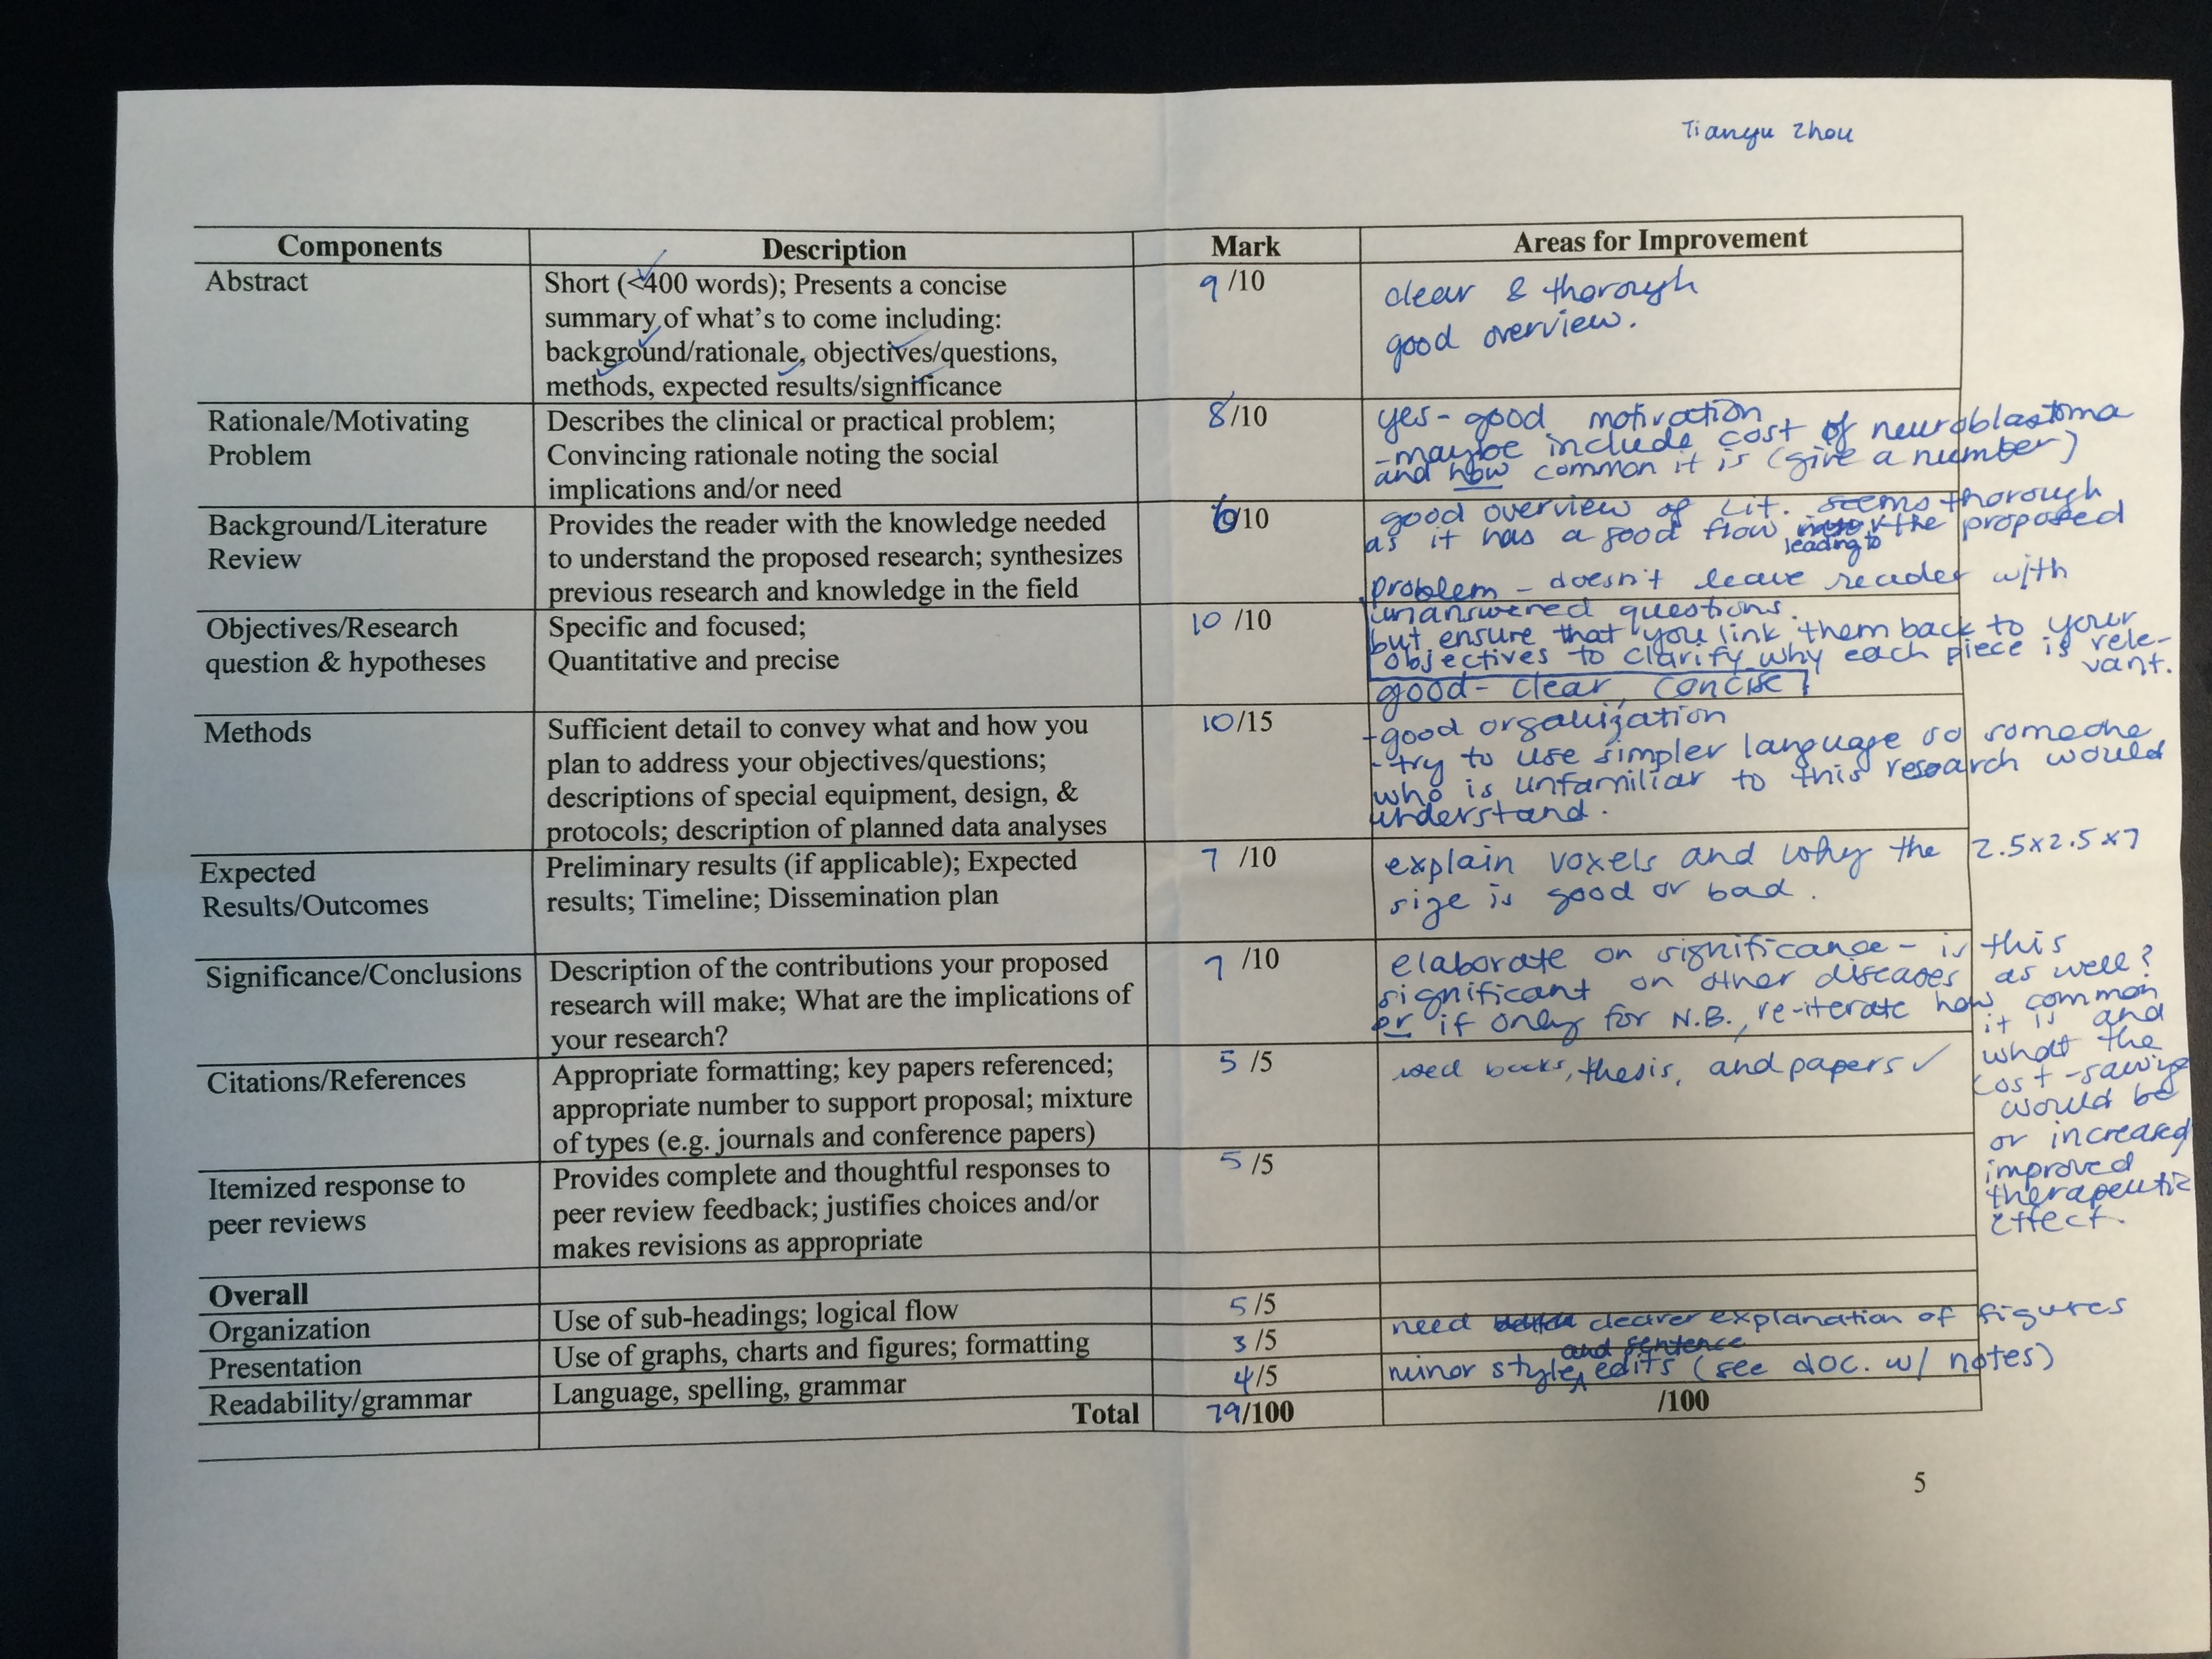 Tianyu Zhou
Components Description Mark Areas for Improvement
Abstract
Short (<400 words); Presents a concise
summary of what's to come including:
background/rationale, objectives/questions,
methods, expected results/significance
9/10
clear & thorough
good overview.
Rationale/Motivating
Problem
Describes the clinical or practical problem;
Convincing rationale noting the social
implications and/or need
8/10
yes - good motivation
- maybe include cost of neuroblastoma
and how common it is (give a number)
Background/Literature
Review
Provides the reader with the knowledge needed
to understand the proposed research; synthesizes
previous research and knowledge in the field
/10
good overview of Lit. seems thorough
as it has a good flow leading to the proposed
problem - doesn't leave reader with
unanswered questions
but ensure that you link them back to your
objectives to clarify why each piece is rele-
vant.
Objectives/Research
question & hypotheses
Specific and focused;
Quantitative and precise
10/10
good - clear concise
Methods
Sufficient detail to convey what and how you
plan to address your objectives/questions;
descriptions of special equipment, design, &
protocols; description of planned data analyses
10/15
- good organization
- try to use simpler language so someone
who is unfamiliar to this research would
understand.
Expected
Results/Outcomes
Preliminary results (if applicable); Expected
results; Timeline; Dissemination plan
7/10
explain voxels and why the 2.5x2.5x7
size is good or bad.
Significance/Conclusions
Description of the contributions your proposed
research will make; What are the implications of
your research?
7/10
elaborate on significance - is this
significant on other diseases as well?
or if only for N.B., re-iterate how common
it is and
what the
cost-savings
would be
or increased
improved
therapeutic
effect.
Citations/References
Appropriate formatting; key papers referenced;
appropriate number to support proposal; mixture
of types (e.g. journals and conference papers)
5/5
used books, thesis, and papers ✓
Itemized response to
peer reviews
Provides complete and thoughtful responses to
peer review feedback; justifies choices and/or
makes revisions as appropriate
5/5
Overall
Organization
Use of sub-headings; logical flow
5/5
Presentation
Use of graphs, charts and figures; formatting
3/5
need clearer explanation of figures
Readability/grammar
Language, spelling, grammar
4/5
and sentence
minor style edits (see doc. w/ notes)
Total 79/100 /100
5